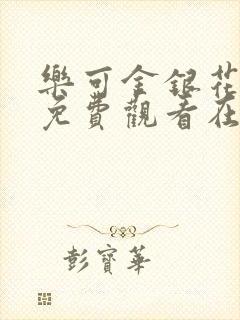 樂可金銀花
免費觀看在
彭寶華